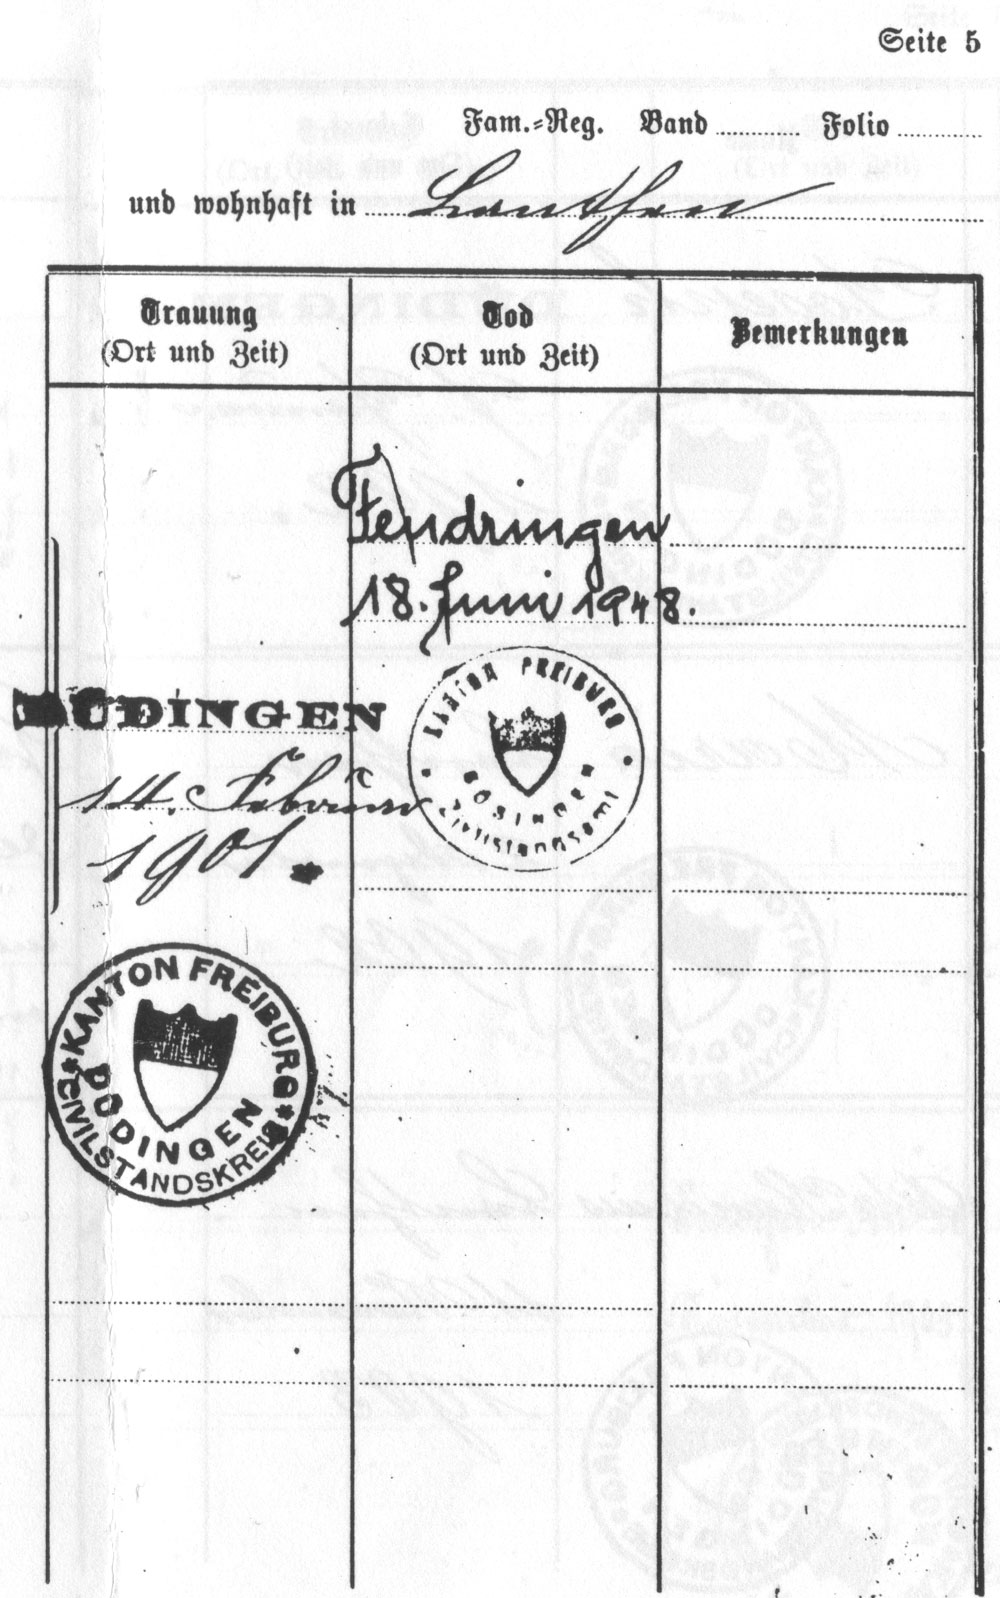 Seite 5
Fam.-Reg. Band Folio
und wohnhaft in Lanthen
Trauung
(Ort und Zeit)
Tod
(Ort und Zeit)
Bemerkungen
Fendringen
18. Juni 1948.
KANTON FREIBURG
BÖSINGEN
Zivilstandsamt
DÜDINGEN
14. Februar
1901.
KANTON FREIBURG
DÜDINGEN
CIVILSTANDSKREIS